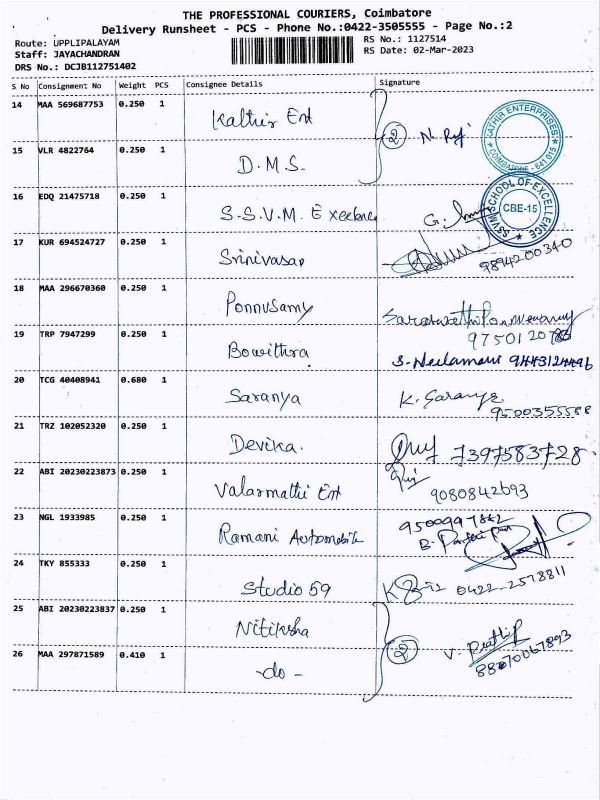 THE PROFESSIONAL COURIERS, Coimbatore
Delivery Runsheet - PCS - Phone No.:0422-3505555 - Page No.:2
Route: UPPLIPALAYAM
RS No.: 1127514
Staff: JAYACHANDRAN
RS Date: 02-Mar-2023
DRS No.: DCJB112751402
S No Consignment No Weight PCS Consignee Details Signature
14 MAA 569687753 0.250 1 Kathir Ent
KATHIR ENTERPRISES COIMBATORE - 641 015
2 N. Raj
15 VLR 4822764 0.250 1 D.M.S.
16 EDQ 21475718 0.250 1 S.S.V.M. Excelence G.
SSVM SCHOOL OF EXCELLENCE CBE-15
17 KUR 694524727 0.250 1 Srinivasan 9894200340
18 MAA 296670360 0.250 1 Ponnusamy
9750120785
19 TRP 7947299 0.250 1 Bowithra S. Neelamani 9443124496
20 TCG 40408941 0.680 1 Saranya K. Saranya
9500355588
21 TRZ 102052320 0.250 1 Devika. 7397583728
22 ABI 20230223873 0.250 1 Valarmathi Ent 9080842693
23 NGL 1933985 0.250 1 Ramani Automobile
24 TKY 855333 0.250 1 Studio 59 0422-2578811
25 ABI 20230223837 0.250 1 Nitiksha
26 MAA 297871589 0.410 1 -do- 2 V.